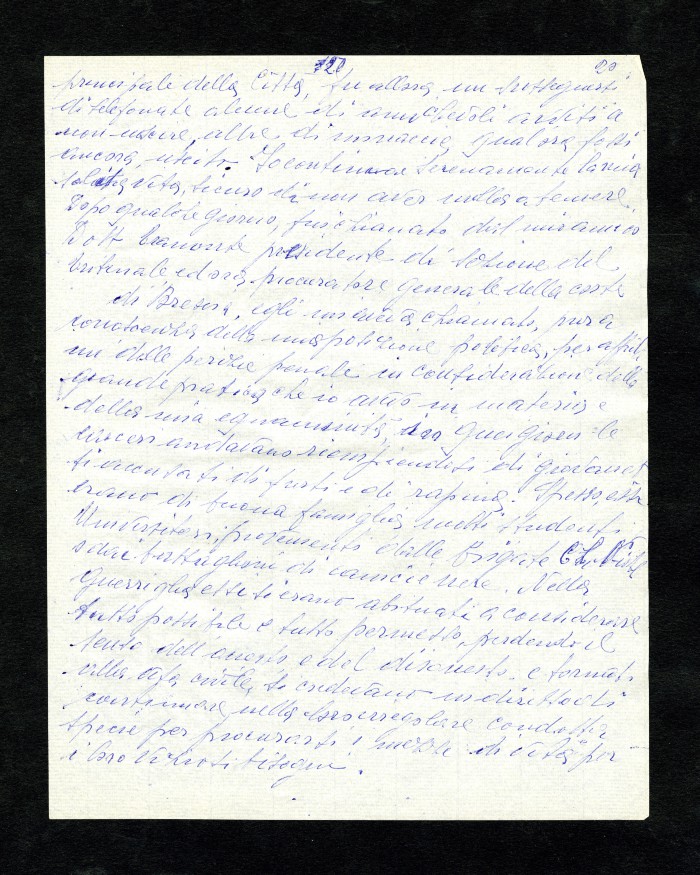 120 20
principale della Città, fu allora un
di telefonate alcune di amichevoli
non uscire, altre di minaccia, qualora fossi
ancora uscito. Io continuai serenamente la mia
solita vita, sicuro di non aver nulla a temere.
Dopo qualche giorno, fui chiamato dal mio amico
Dott. presidente di Sezione del
tribunale ed ora procuratore generale della corte
di Brescia, egli mi aveva chiamato, pur a
conoscenza della mia posizione politica, per
mi delle perizie penali in considerazione della
grande pratica che io avevo in materia e
della mia equanimità, in quei giorni le
carceri andavano riempiendosi di giovanetti
accusati di furti e di rapina. Spesso, essi
erano di buona famiglia, molti studenti
Universitari, provenienti dalle Brigate
o dai battaglioni di camicie nere. Nella
Guerriglia essi si erano abituati a considerare
tutto possibile e tutto permesso, perdendo il
senso dell'onesto e del disonesto e tornati
alla vita civile, si credevano in diritto di
continuare nella loro irregolare condotta
specie per procurarsi i mezzi di vita per
i loro bisogni.